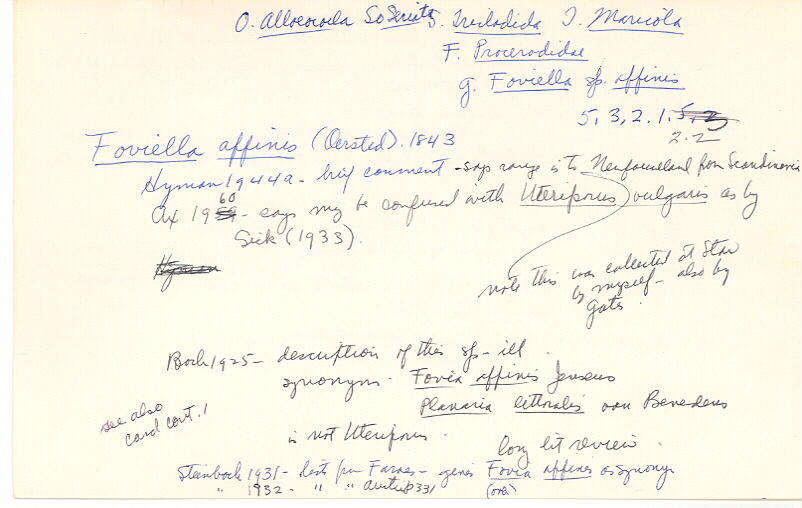 O. Alloeocoela So Seriata S. Tricladida I. Maricola
F. Procerodidae
g. Foviella sp. affinis
5, 3, 2. 1. 5, 3
2.2
Foviella affinis (Oersted). 1843
Hyman 1944a - brief comment - says range is to Newfoundland from Scandinavia
Ax 1960 - says may be confused with Uteriporus vulgaris as by
Sick (1933).
Hyman
note this was collected at
by myself - also by
Gates.
Bock 1925 - description of this sp - ill.
synonyms - Fovia affinis Jensens
Planaria littoralis van Benedens
is not Uteriporus.
long lit review.
see also
card cont. 1
Steinbock 1931 - lists from Faroes - gives Fovia affinis as synonym
" 1932 - " " p 331 (over)